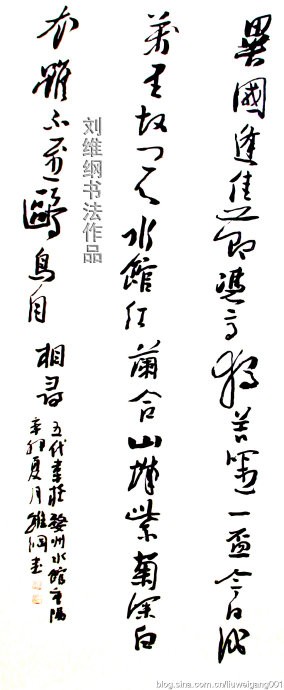 異國逢佳節憑高獨苦吟一盃今日醉
萬里故園心水館紅蘭合山城紫菊深白
衣雖不至鷗鳥自相尋
五代韋莊婺州水館重陽
辛卯夏月維綱書
刘维纲书法作品
blog.sina.com.cn/liuweigang001